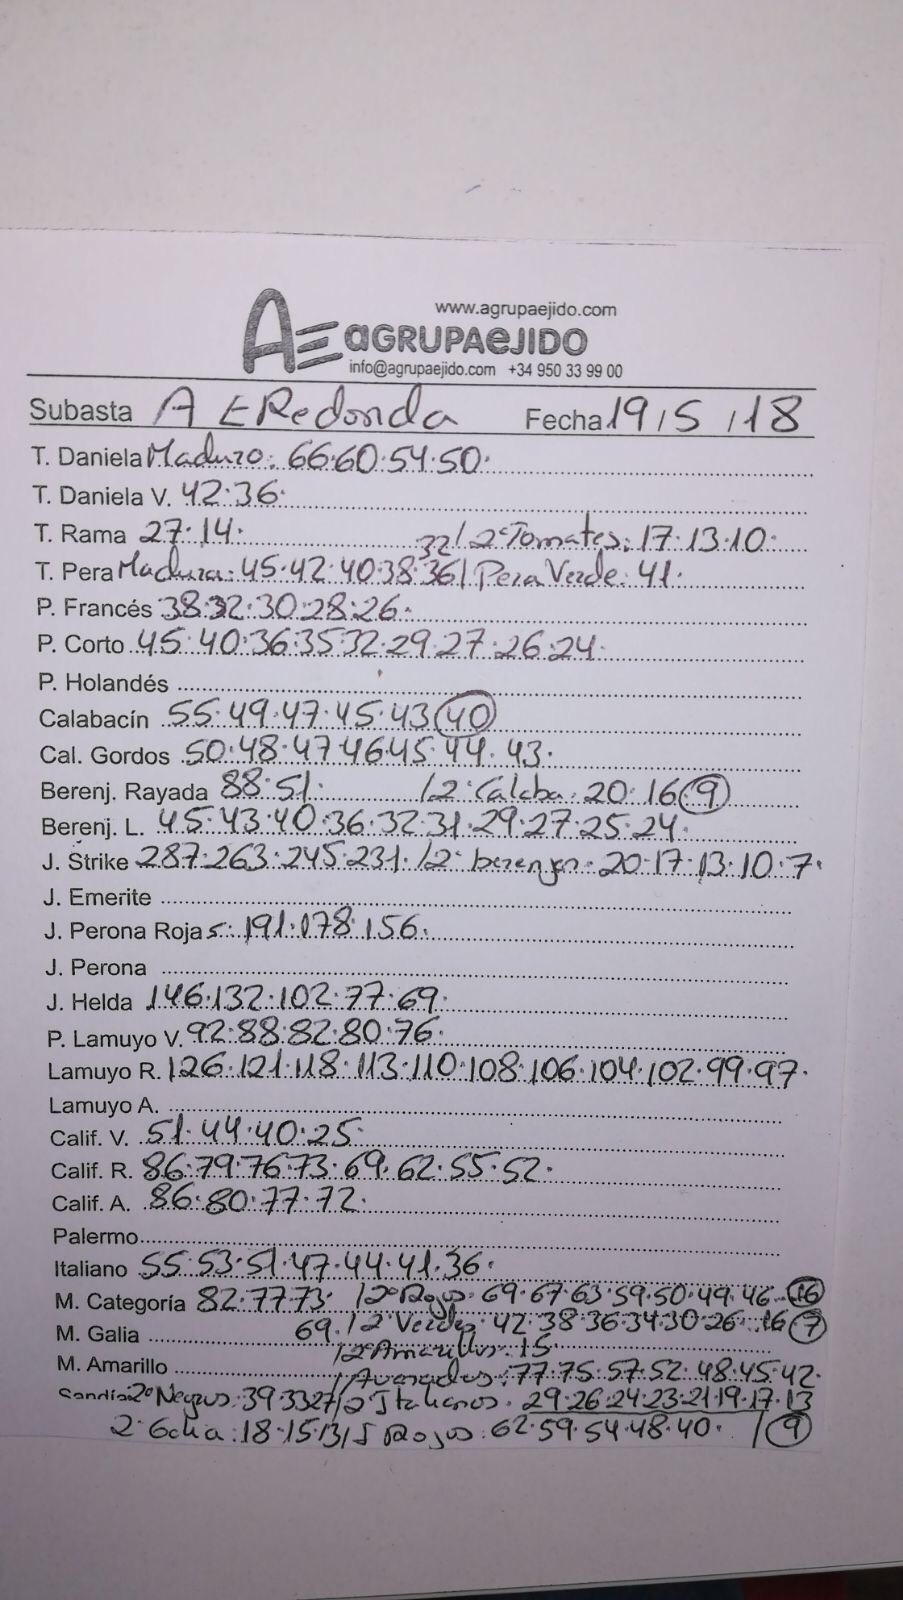 www.agrupaejido.com
AE aGRUPAeJIDO
info@agrupaejido.com +34 950 33 99 00
Subasta A E Redonda Fecha 19/5/18
T. Daniela Maduro: 66·60·54·50·
T. Daniela V. 42·36·
T. Rama 27·14· 32/2ªTomates: 17·13·10·
T. Pera Madura: 45·42·40·38·36/Pera Verde: 41·
P. Francés 38·32·30·28·26·
P. Corto 45·40·36·35·32·29·27·26·24·
P. Holandés
Calabacín 55·49·47·45·43 40
Cal. Gordos 50·48·47·46·45·44·43·
Berenj. Rayada 88·51· /2ª Calaba: 20·16 9
Berenj. L. 45·43·40·36·32·31·29·27·25·24·
J. Strike 287·263·245·231·/2ª berenjas· 20·17·13·10·7·
J. Emerite
J. Perona Rojas: 191·178·156·
J. Perona
J. Helda 146·132·102·77·69·
P. Lamuyo V. 92·88·82·80·76·
Lamuyo R. 126·121·118·113·110·108·106·104·102·99·97·
Lamuyo A.
Calif. V. 51·44·40·25
Calif. R. 86·79·76·73·69·62·55·52·
Calif. A. 86·80·77·72·
Palermo
Italiano 55·53·51·47·44·41·36·
M. Categoría 82·77·73· /2º Rojos: 69·67·63·59·50·49·46· 16
M. Galia 69·/2º Verdes: 42·38·36·34·30·26· 16 7
/2º Amarillos: 15·
M. Amarillo /Asurcados: 77·75·57·52·48·45·42·
Sandía 2º Negros: 39·33·27/2º Italianos· 29·26·24·23·21·19·17·13
2· Galia: 18·15·13/S Rojos: 62·59·54·48·40· /9